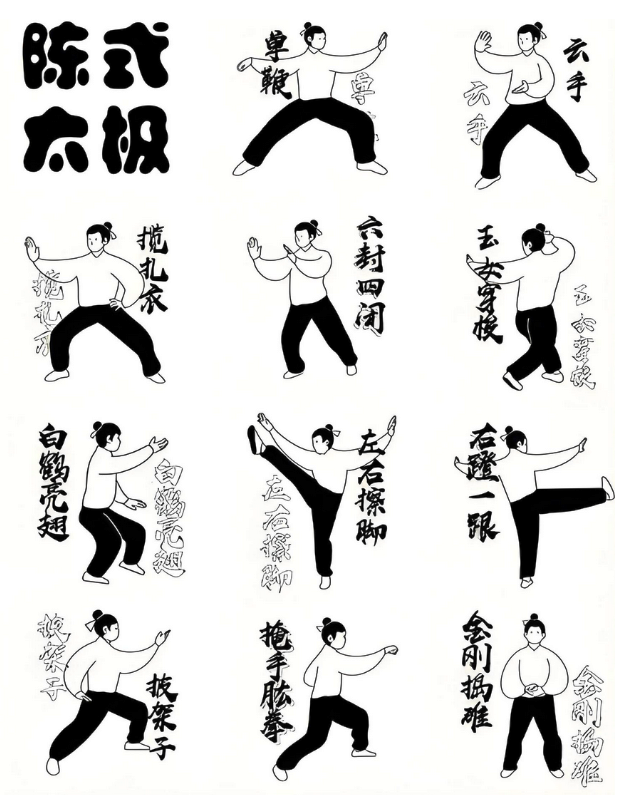 陈式
太极
单鞭
单
云手
云手
揽扎衣
揽扎衣
六封四闭
玉女穿梭
玉女穿梭
白鹤亮翅
白鹤亮翅
左右擦脚
左右擦脚
右蹬一跟
披架子
披架子
掩手肱拳
金刚捣碓
金刚捣碓